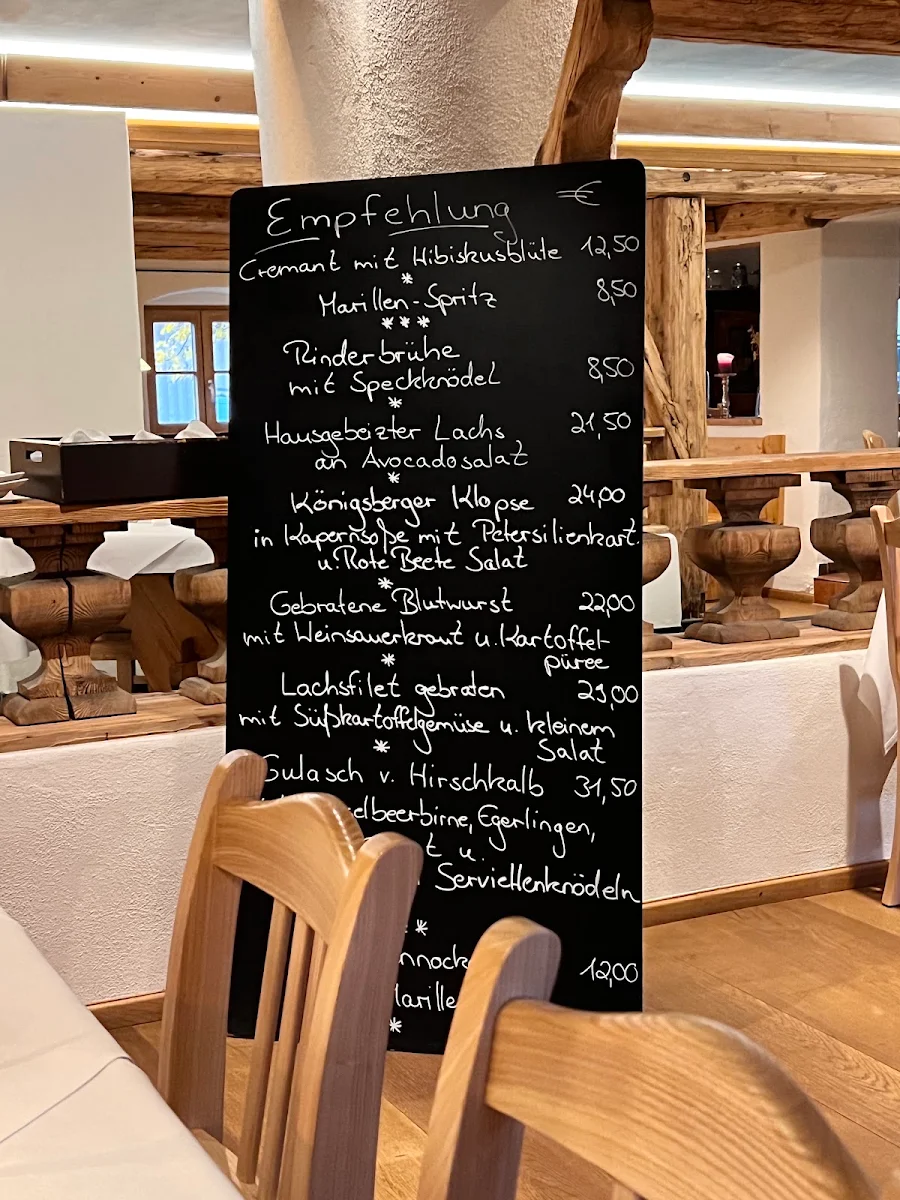 Empfehlung €
Cremant mit Hibiskusblüte 12,50
*
Marillen-Spritz 8,50
***
Rinderbrühe
mit Speckknödel 8,50
*
Hausgebeizter Lachs 21,50
an Avocadosalat
*
Königsberger Klopse 24,00
in Kapernsoße mit Petersilienkart.
u. Rote Beete Salat
*
Gebratene Blutwurst 22,00
mit Weinsauerkraut u. Kartoffel-
püree
*
Lachsfilet gebraten 29,00
mit Süßkartoffelgemüse u. kleinem
Salat
*
Gulasch v. Hirschkalb 31,50
Egerlingen,
u.
Serviettenknödeln
*
12,00
*